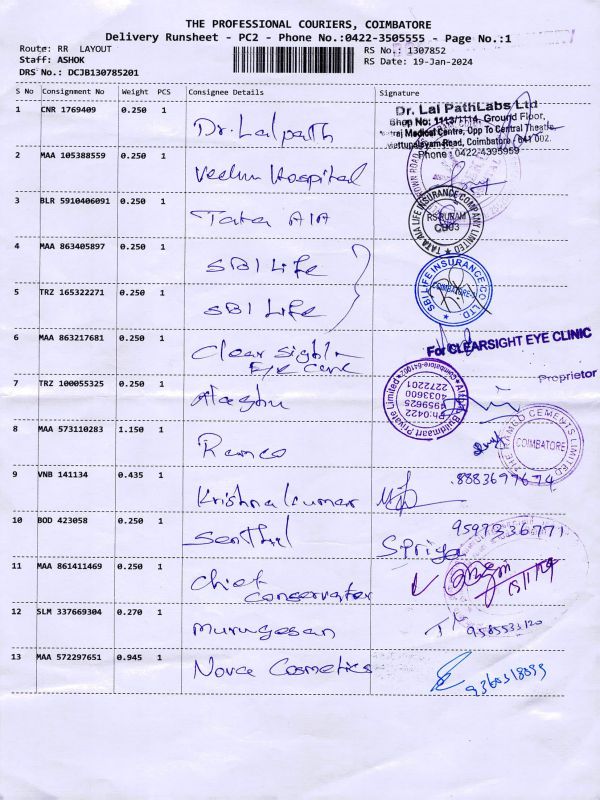 THE PROFESSIONAL COURIERS, COIMBATORE
Delivery Runsheet - PC2 - Phone No.:0422-3505555 - Page No.:1
Route: RR LAYOUT
RS No.: 1307852
Staff: ASHOK
RS Date: 19-Jan-2024
DRS No.: DCJB130785201
S No Consignment No Weight PCS Consignee Details Signature
1 CNR 1769409 0.250 1 Dr. Lalpath
Dr. Lal PathLabs Ltd
Shop No: 1113/1114, Ground Floor,
Medical Centre, Opp To Central Theatre,
Road, Coimbatore - 641 002.
Phone : 0422-4395959
2 MAA 105388559 0.250 1 Hospital
3 BLR 5910406091 0.250 1 Tata AIA
TATA AIA LIFE INSURANCE COMPANY LIMITED
RS PURAM
4 MAA 863405897 0.250 1 SBI Life
SBI LIFE INSURANCE CO. LTD.
COIMBATORE
5 TRZ 165322271 0.250 1 SBI Life
6 MAA 863217681 0.250 1 Clear Sight
Eye Care
For CLEARSIGHT EYE CLINIC
Proprietor
7 TRZ 100055325 0.250 1
Buildmaart Private Limited
Ph:0422
4959625
4033600
2272201
8 MAA 573110283 1.150 1 Ramco
THE RAMCO CEMENTS LIMITED
COIMBATORE
9 VNB 141134 0.435 1 Krishna Kumar 8883697674
10 BOD 423058 0.250 1 Senthil S Priya 9597336771
11 MAA 861411469 0.250 1 Chief
Conservator
12 SLM 337669304 0.270 1 Murugesan
13 MAA 572297651 0.945 1 Nova Cosmetics